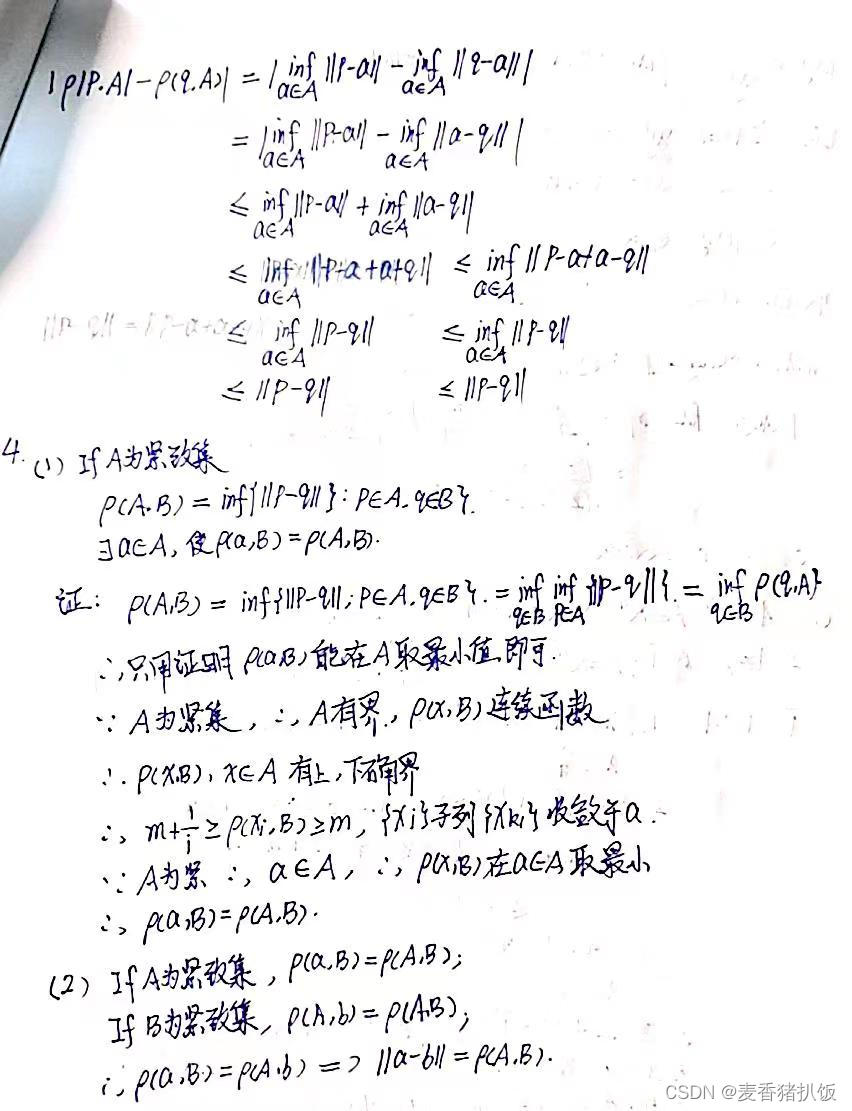 |ρ(P.A)-ρ(q.A)| = |inf a∈A ||P-a|| - inf a∈A ||q-a|| |
= |inf a∈A ||P-a|| - inf a∈A ||a-q|| |
≤ inf a∈A ||P-a|| + inf a∈A ||a-q||
≤ inf a∈A ||P+a+a+q|| ≤ inf a∈A ||P-a+a-q||
≤ inf a∈A ||P-q|| ≤ inf a∈A ||P-q||
≤ ||P-q|| ≤ ||P-q||
4. (1) If A为紧致集
ρ(A.B) = inf{||P-q||}: P∈A.q∈B}.
∃a∈A, 使ρ(a,B)=ρ(A,B).
证: ρ(A,B) = inf{||P-q||; P∈A.q∈B}. = inf q∈B inf P∈A {||P-q||}. = inf q∈B ρ(q,A)
∴只用证明 ρ(a,B) 能在A取最小值即可.
∵ A为紧集, ∴ A有界, ρ(x,B) 连续函数
∴ ρ(x,B), x∈A 有上,下确界
∴ m+1/i ≥ρ(xi,B)≥m, {xi}子列{xki}收敛于a.
∵ A为紧 ∴ a∈A, ∴ ρ(x,B)在a∈A取最小
∴ ρ(a,B)=ρ(A,B).
(2) If A为紧致集, ρ(a,B)=ρ(A,B);
If B为紧致集, ρ(A,b)=ρ(A,B);
∴ ρ(a,B)=ρ(A,b) => ||a-b||=ρ(A.B).
CSDN @麦香猪扒饭